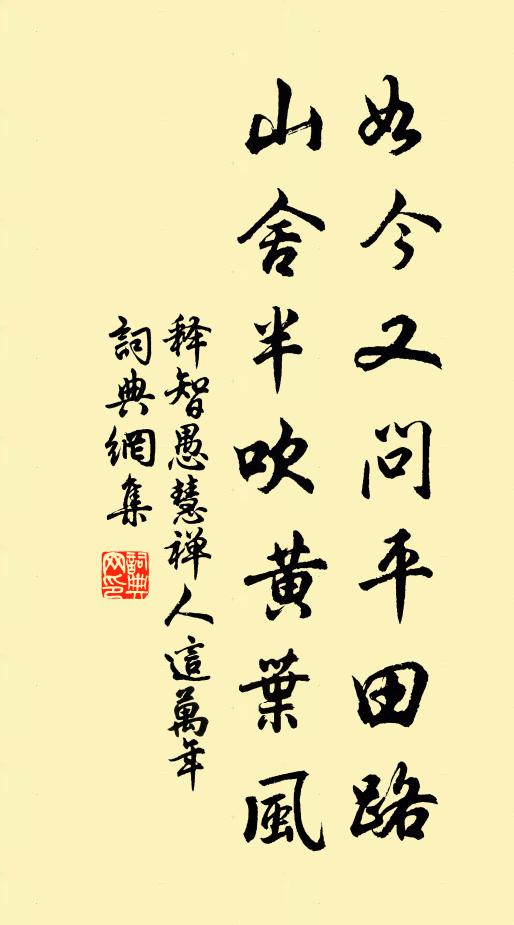 如今又問平田路
山舍半吹黄葉風
释智愚慧禅人這萬年
詞典網集
詞典网印